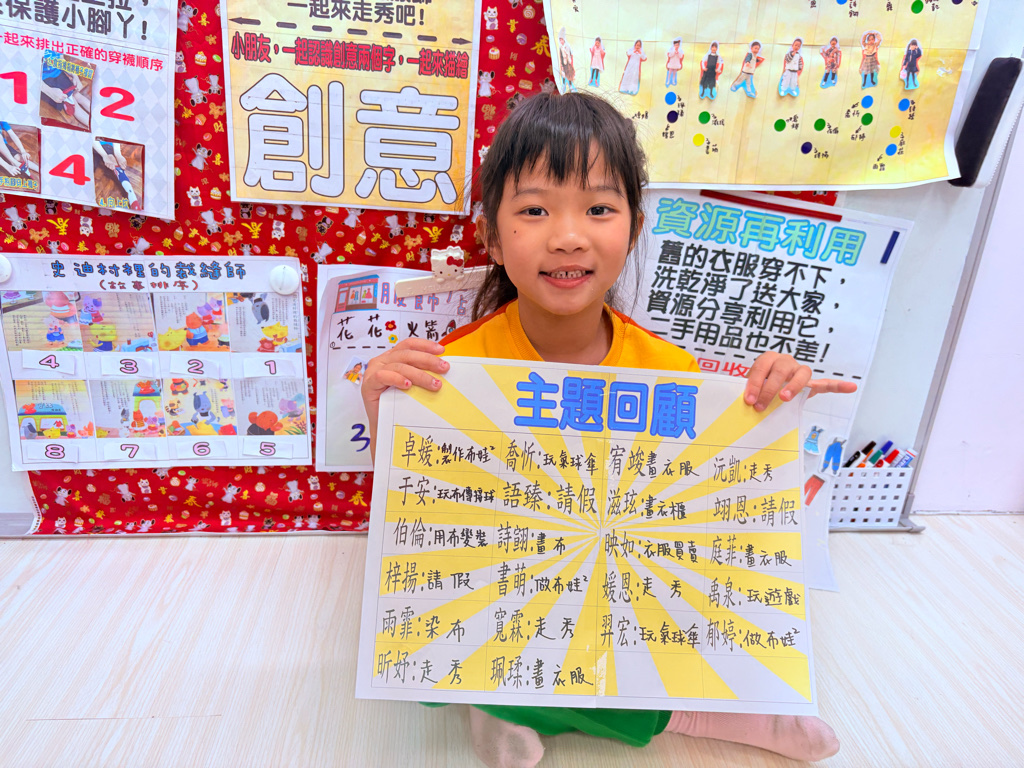 保護小腳丫!
一起來排出正確的穿襪順序
1
2
4
一起來走秀吧!
小朋友,一起認識創意兩個字,一起來描繪
創意
史迪村裡的裁縫師
(故事排序)
4 3 2 1
8 7 6 5
花 花 火箭
3
資源再利用
舊的衣服穿不下,
洗乾淨了送大家,
資源分享利用它,
二手用品也不差!
回收
主題回顧
卓媛:製作布娃² 喬忻:玩氣球傘 宥竣畫衣服 沅凱:走秀
于安:玩布傳接球 語臻:請假 滋玹:畫衣櫃 翊恩:請假
伯倫:用布變裝 詩翮:畫布 映如:衣服買賣 庭菲:畫衣服
梓揚:請假 書萌:做布娃² 媛恩:走秀 禹泉:玩遊戲
雨霏:染布 寬霖:走秀 羿宏:玩氣球傘 郁婷:做布娃²
昕妤:走秀 珮瑈:畫衣服